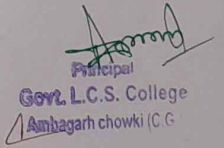 Principal
Govt. L.C.S. College
Ambagarh chowki (C.G